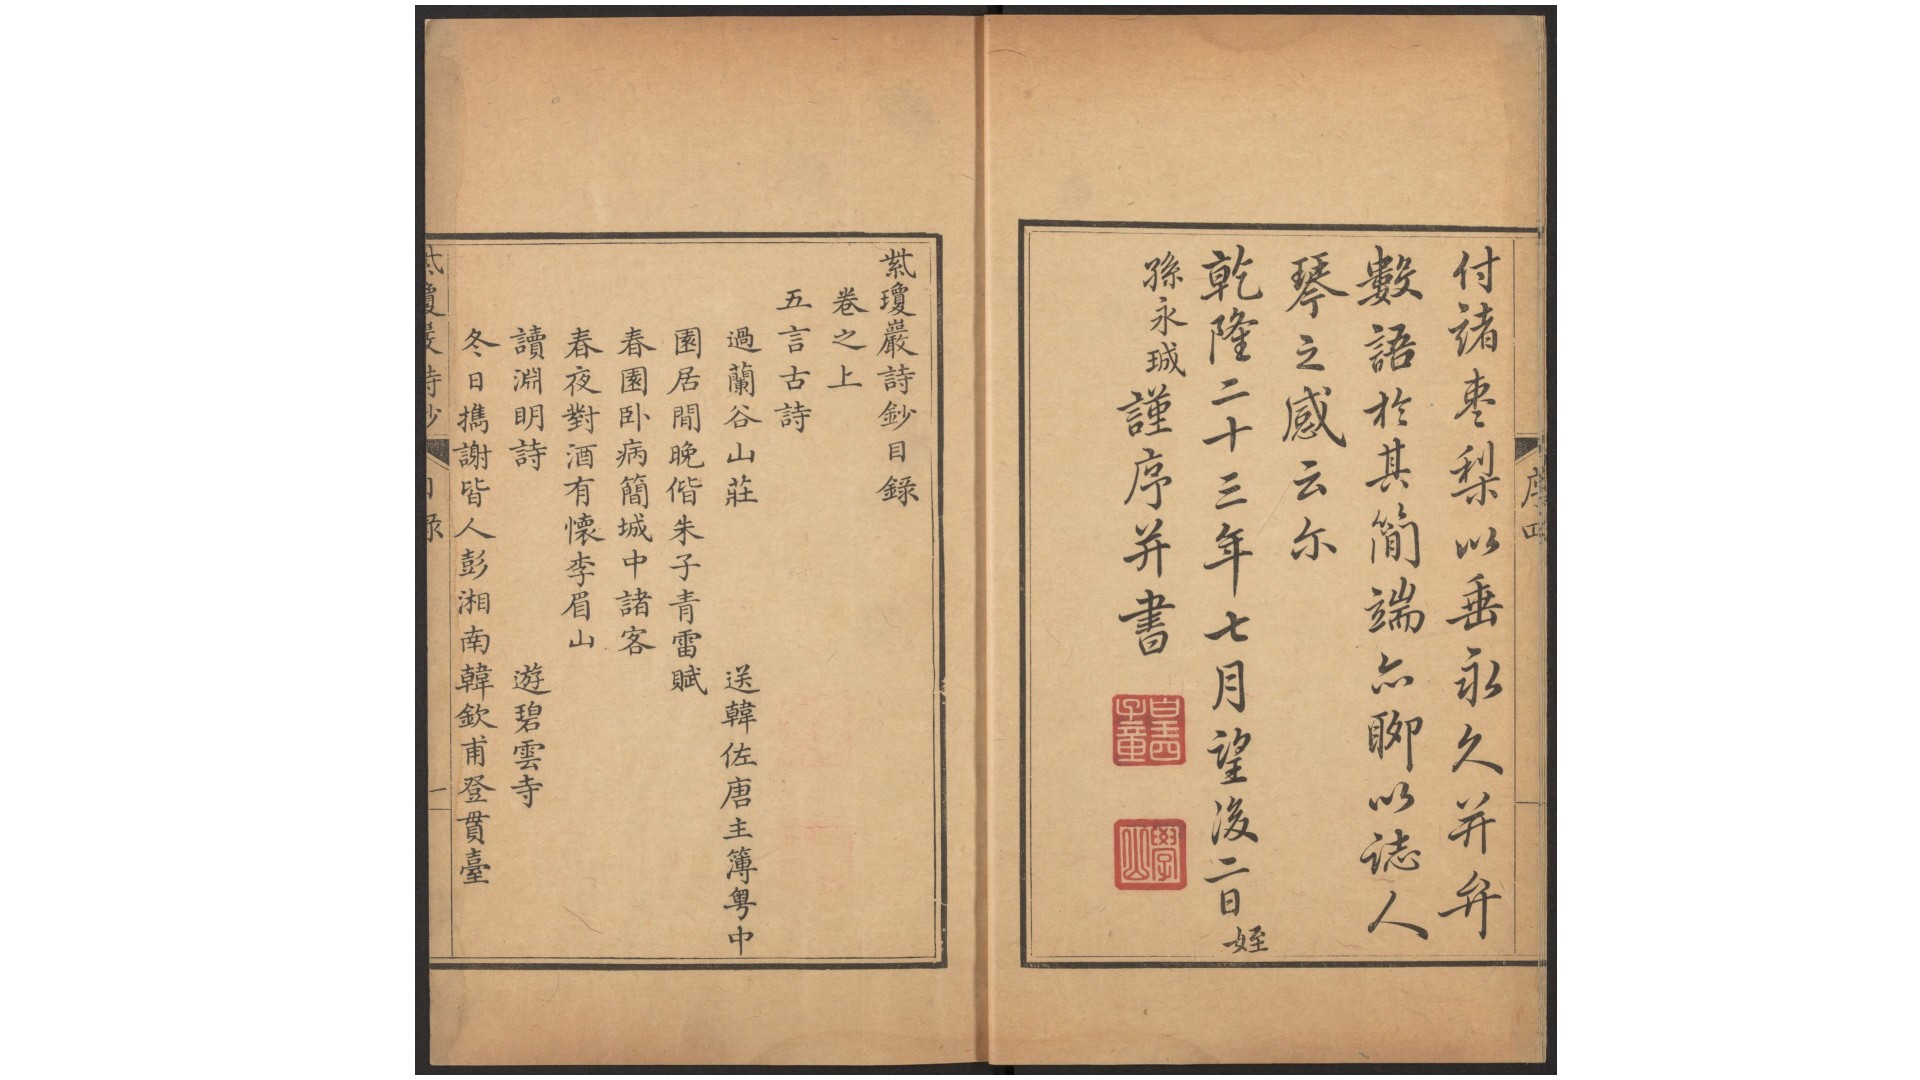 序 四
付諸棗梨以垂永久并弁
數語於其簡端亦聊以誌人
琴之感云尔
乾隆二十三年七月望後二日姪
孫永珹謹序并書
皇四子章
學山
紫瓊巖詩鈔目録
卷之上
五言古詩
過蘭谷山莊 送韓佐唐主簿粤中
園居閒晚偕朱子青雷賦
春園卧病簡城中諸客
春夜對酒有懷李眉山
讀淵明詩 遊碧雲寺
冬日攜謝皆人彭湘南韓欽甫登貫臺
紫瓊巖詩鈔 目録 一